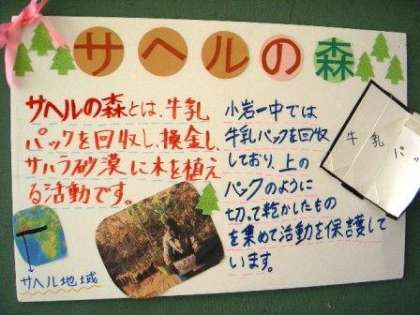 サヘルの森
サヘルの森とは、牛乳
パックを回収し、換金し、
サハラ砂漠に木を植え
る活動です。
小岩一中では
牛乳パックを回収
しており、上の
パックのように
切って乾かしたもの
を集めて活動を保護して
います。
牛乳パッ
サヘル地域